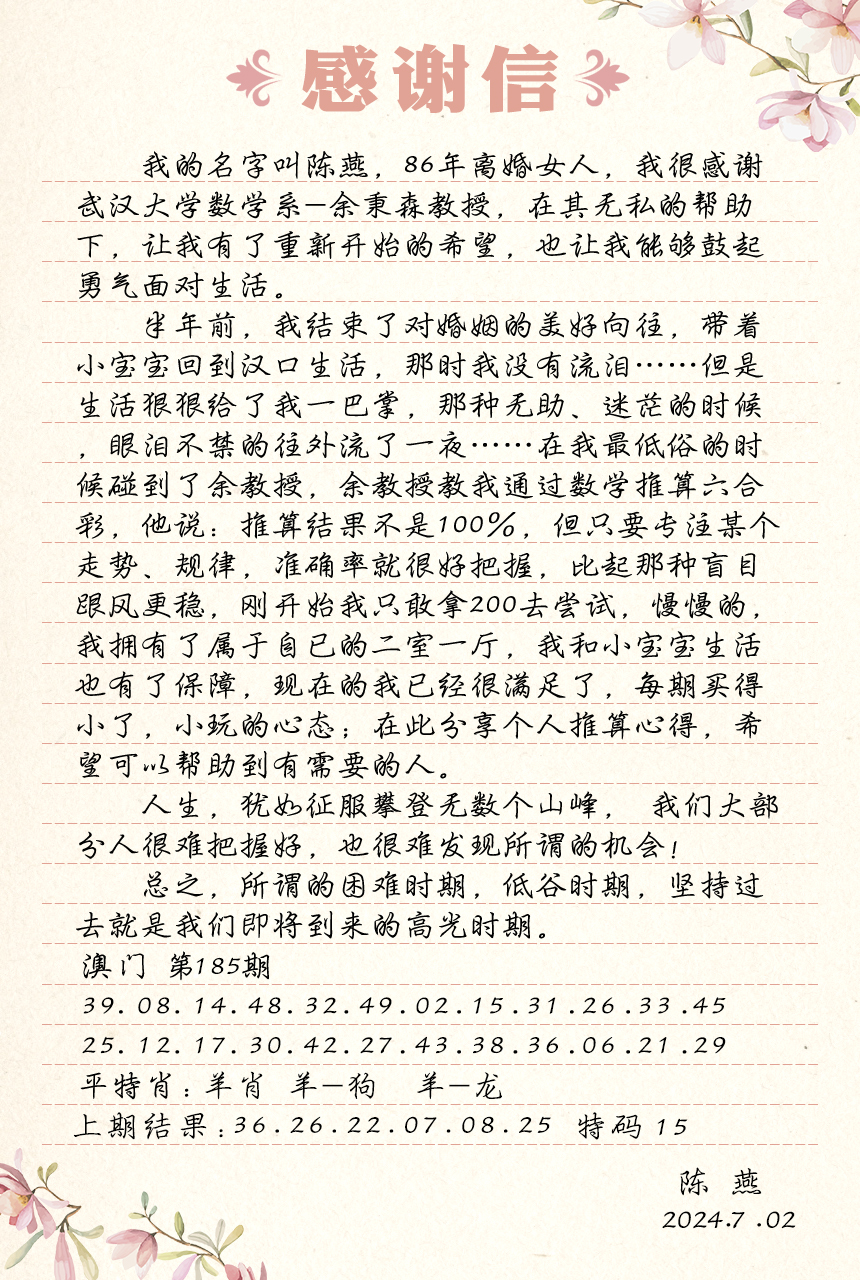 感谢信
我的名字叫陈燕，86年离婚女人，我很感谢
武汉大学数学系—余秉森教授，在其无私的帮助
下，让我有了重新开始的希望，也让我能够鼓起
勇气面对生活。
半年前，我结束了对婚姻的美好向往，带着
小宝宝回到汉口生活，那时我没有流泪……但是
生活狠狠给了我一巴掌，那种无助、迷茫的时候
，眼泪不禁的往外流了一夜……在我最低俗的时
候碰到了余教授，余教授教我通过数学推算六合
彩，他说：推算结果不是100%，但只要专注某个
走势、规律，准确率就很好把握，比起那种盲目
跟风更稳，刚开始我只敢拿200去尝试，慢慢的，
我拥有了属于自已的二室一厅，我和小宝宝生活
也有了保障，现在的我已经很满足了，每期买得
小了，小玩的心态；在此分享个人推算心得，希
望可以帮助到有需要的人。
人生，犹如征服攀登无数个山峰， 我们大部
分人很难把握好，也很难发现所谓的机会！
总之，所谓的困难时期，低谷时期，坚持过
去就是我们即将到来的高光时期。
澳门 第185期
39.08.14.48.32.49.02.15.31.26.33.45
25.12.17.30.42.27.43.38.36.06.21.29
平特肖：羊肖 羊—狗 羊—龙
上期结果：36.26.22.07.08.25 特码 15
陈 燕
2024.7.02